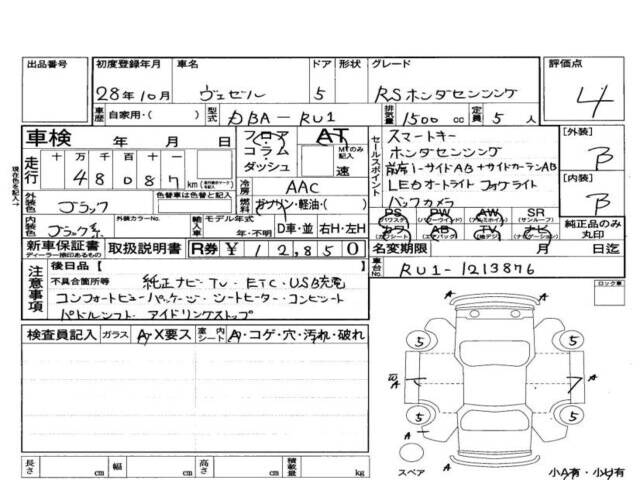 出品番号 初度登録年月 車名 ドア 形状 グレード 評価点
28年10月 ヴェゼル 5 RSホンダセンシング 4
車歴 自家用・( ) 型式 DBA-RU1 排気量 1500 cc 定員 5 人
車検 年 月 日 フロア コラム ダッシュ AT MTのみ記入 速
セールスポイント スマートキー
ホンダセンシング
前席i-サイドAB+サイドカーテンAB
LEDオートライト フォグライト
バックカメラ
[外装] B
[内装] B
現在色を記入→
走行 十 万 千 百 十 一
4 8 0 8 7 km
冷房 AAC
燃料 ガソリン・軽油・( )
外装色 ブラック 色替車は色替と記入
内装色 ブラック系 外装カラーNo. 輸入車 モデル年式 年・不明 D車・並 右H・左H
PS PW AW SR
(パワステ) (パワーウインド) (アルミホイル) (サンルーフ)
カワ AB TV ナビ
(カワシート) (エアバッグ) (地デジ) (ナビゲーション)
純正品のみ丸印
新車保証書 ディーラー捺印あるもの 取扱説明書 R券 ¥ 12,850 名変期限 月 日迄
車台No. RU1-1213876
注意事項 後日品( )
不具合箇所等 純正ナビ TV ETC USB充電
コンフォートビューパッケージ シートヒーター コンビシート
パドルシフト アイドリングストップ
ロック車
検査員記入 ガラス A・X要ス 室内シート A・コゲ・穴・汚れ・破れ
5 5
W A A
A
5 5
A A
スペア 小A有・小U有
長さ cm 幅 cm 高さ cm 積載量 kg